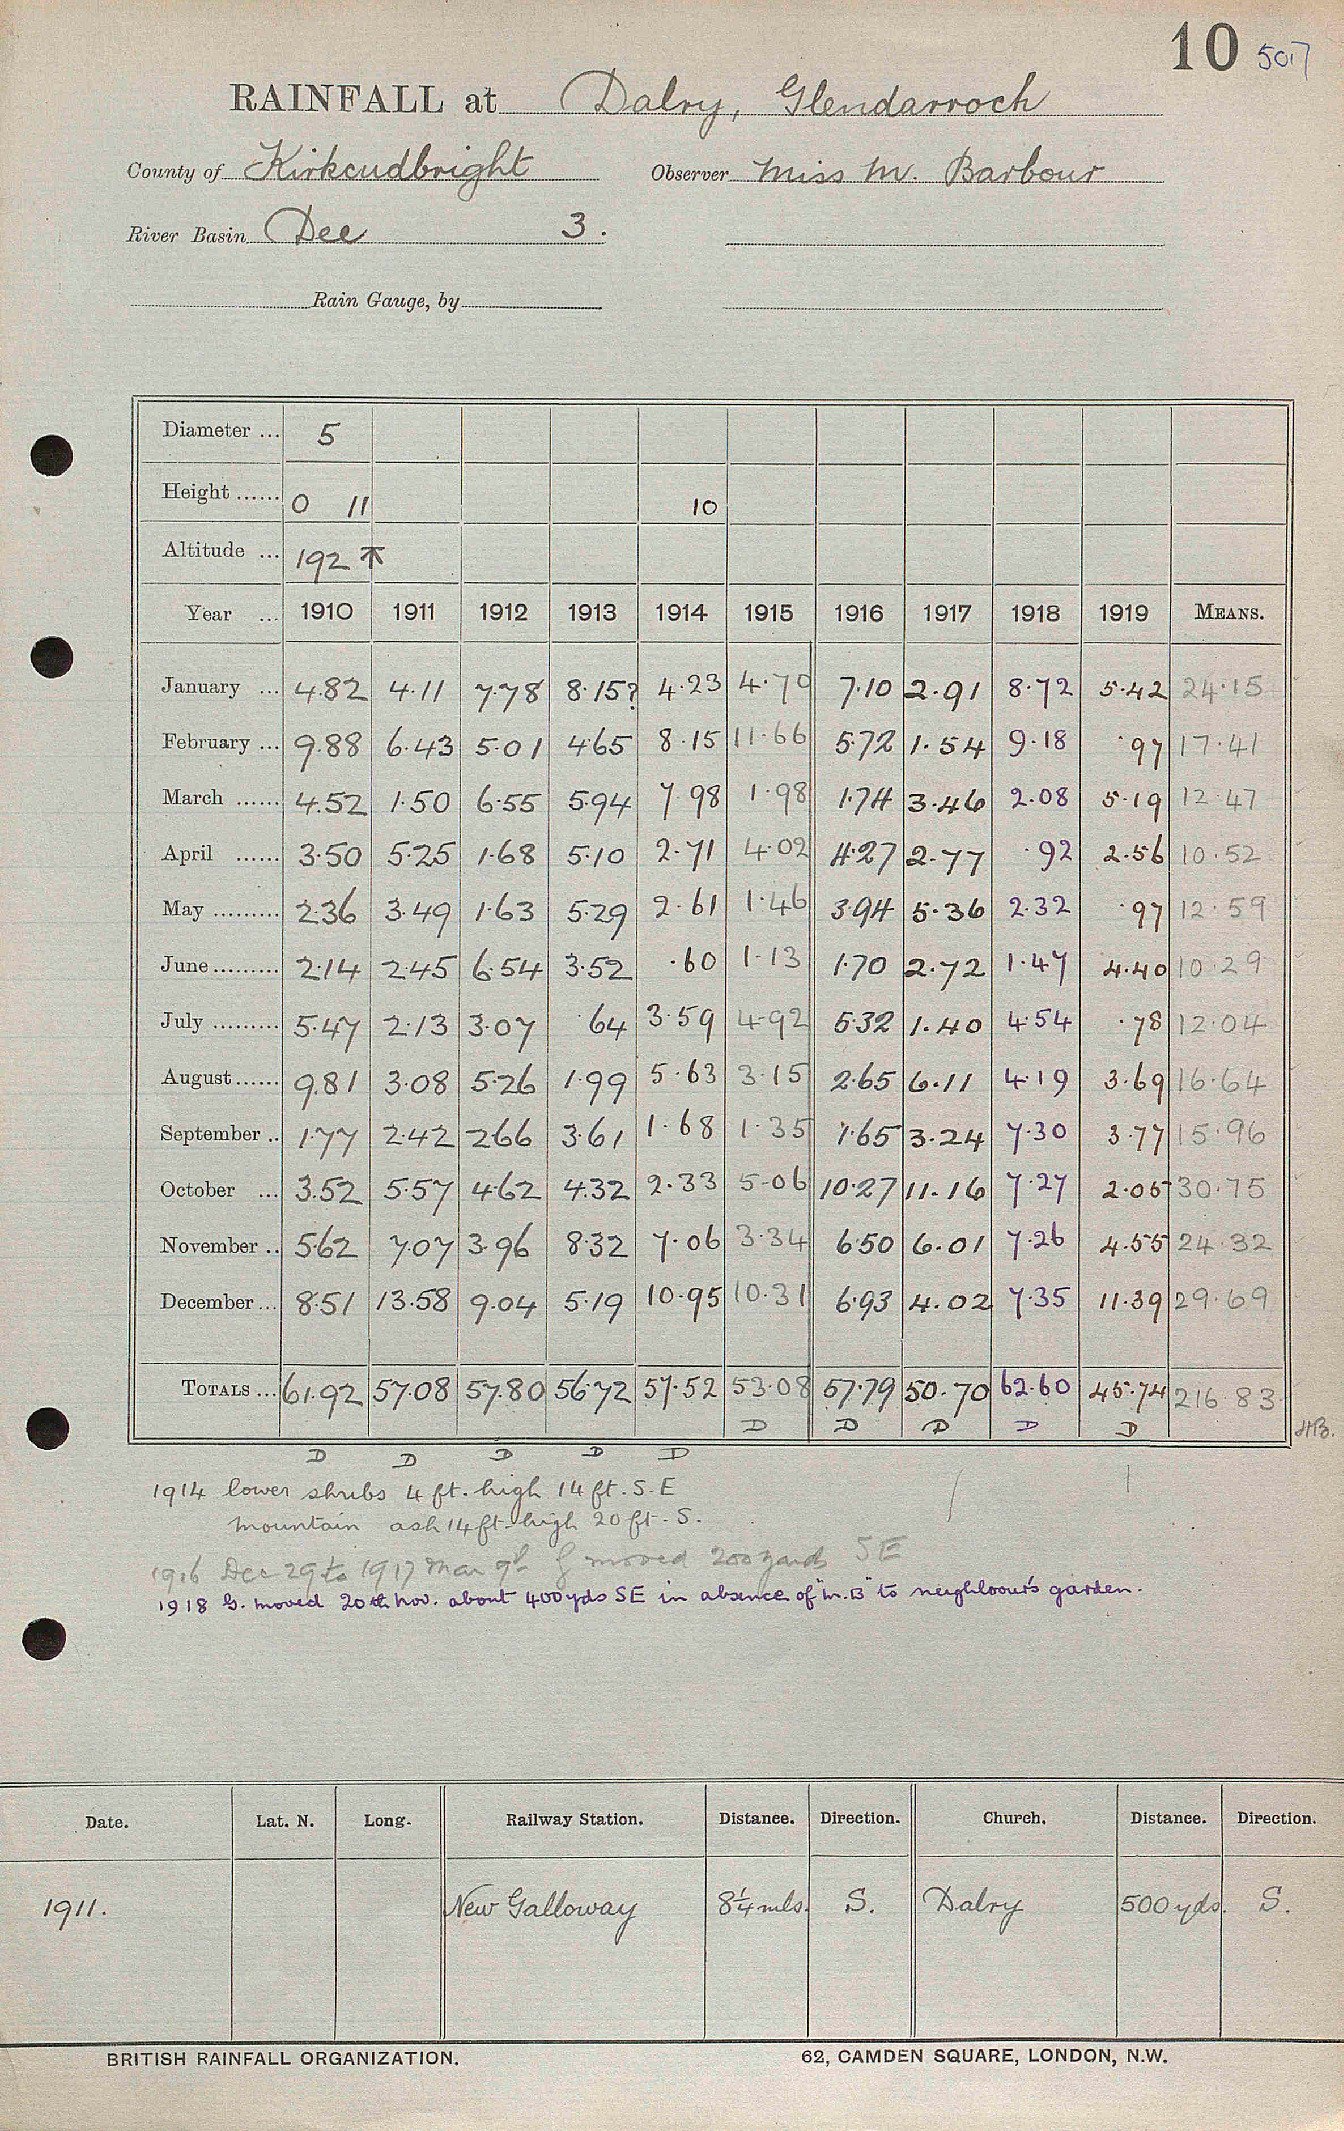 10 507
RAINFALL at Dalry, Glendarroch
County of Kirkcudbright Observer Miss M. Barbour
River Basin Dee 3.
Rain Gauge, by
Diameter ... 5
Height ...... 0 11 10
Altitude ... 192 ⊼
Year ... 1910 1911 1912 1913 1914 1915 1916 1917 1918 1919 MEANS.
January ... 4.82 4.11 7.78 8.15? 4.23 4.70 7.10 2.91 8.72 5.42 24.15
February ... 9.88 6.43 5.01 4.65 8.15 11.66 5.72 1.54 9.18 .97 17.41
March ...... 4.52 1.50 6.55 5.94 7.98 1.98 1.74 3.46 2.08 5.19 12.47
April ...... 3.50 5.25 1.68 5.10 2.71 4.02 4.27 2.77 .92 2.56 10.52
May ......... 2.36 3.49 1.63 5.29 2.61 1.46 3.94 5.36 2.32 .97 12.59
June ......... 2.14 2.45 6.54 3.52 .60 1.13 1.70 2.72 1.47 4.40 10.29
July ......... 5.47 2.13 3.07 .64 3.59 4.92 5.32 1.40 4.54 .78 12.04
August ...... 9.81 3.08 5.26 1.99 5.63 3.15 2.65 6.11 4.19 3.69 16.64
September .. 1.77 2.42 2.66 3.61 1.68 1.35 1.65 3.24 7.30 3.77 15.96
October ... 3.52 5.57 4.62 4.32 2.33 5.06 10.27 11.16 7.27 2.05 30.75
November .. 5.62 7.07 3.96 8.32 7.06 3.34 6.50 6.01 7.26 4.55 24.32
December ... 8.51 13.58 9.04 5.19 10.95 10.31 6.93 4.02 7.35 11.39 29.69
TOTALS ... 61.92 57.08 57.80 56.72 57.52 53.08 57.79 50.70 62.60 45.74 216 83
D D D D D HB.
D D D D D
1914 lower shrubs 4 ft. high 14 ft. S.E
mountain ash 14 ft. high 20 ft. S.
1916 Dec 29 to 1917 Mar 9th G moved 200 yards SE
1918 G. moved 20th Nov. about 400 yds SE in absence of "M.B" to neighbour's garden.
Date. Lat. N. Long. Railway Station. Distance. Direction. Church. Distance. Direction.
1911. New Galloway 8¼ mls. S. Dalry 500 yds. S.
BRITISH RAINFALL ORGANIZATION. 62, CAMDEN SQUARE, LONDON, N.W.